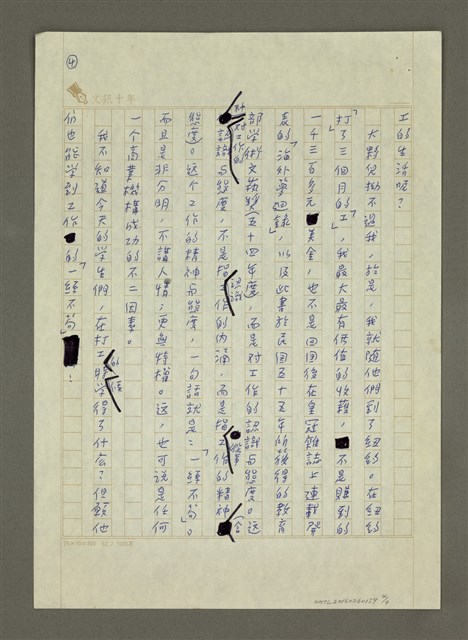 ④
文訊十年
工的生活呢？
大夥兒拗不過我，於是，我就隨他們到了紐約。在紐約
「打」了三個月的「工」，我最大最有价值的收穫，不是賺到的
一千三百多元美金，也不是回國後在皇冠雜誌上連載發
表的「海外夢迴錄」，以及此書於民國五十五年所獲得的教育
部學術文藝獎（五十四年度，而是对工作的認識与態度。这
对工作的認識与態度，不是指工作的內涵，而是指工作的精神
認識
態度。这个工作的精神与態度，一句話就是：「一絲不苟」。
而且是非分明，不講人情；更無特權。这，也可說是任何
一个商業機構成功的不二因素。
我不知道今天的学生們，在打工時学得了什么？但願他
們也能学到工作的「一絲不苟」！